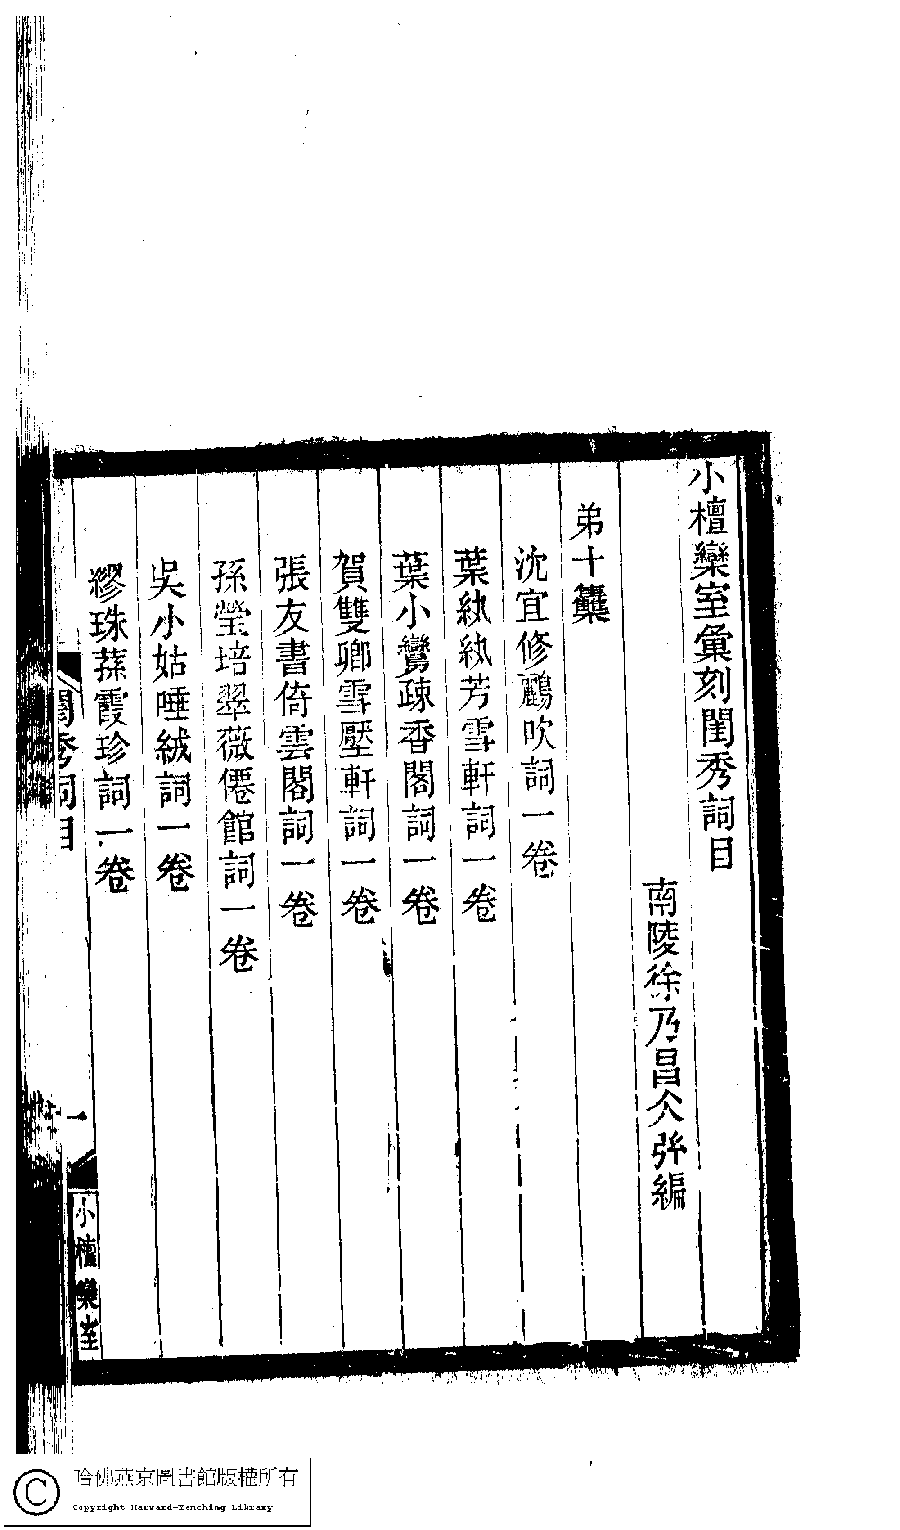 小檀欒室彙刻閨秀詞目
南陵徐乃昌仌㢧編
弟十集
沈宜修鸝吹詞一卷
葉紈紈芳雪軒詞一卷
葉小鸞疎香閣詞一卷
賀雙卿雪壓軒詞一卷
張友書倚雲閣詞一卷
孫瑩培翠薇僊館詞一卷
吳小姑唾絨詞一卷
繆珠蓀霞珍詞一卷
閨秀詞目
一
小檀欒室
哈佛燕京圖書館版權所有
Copyright Harvard-Yenching Library